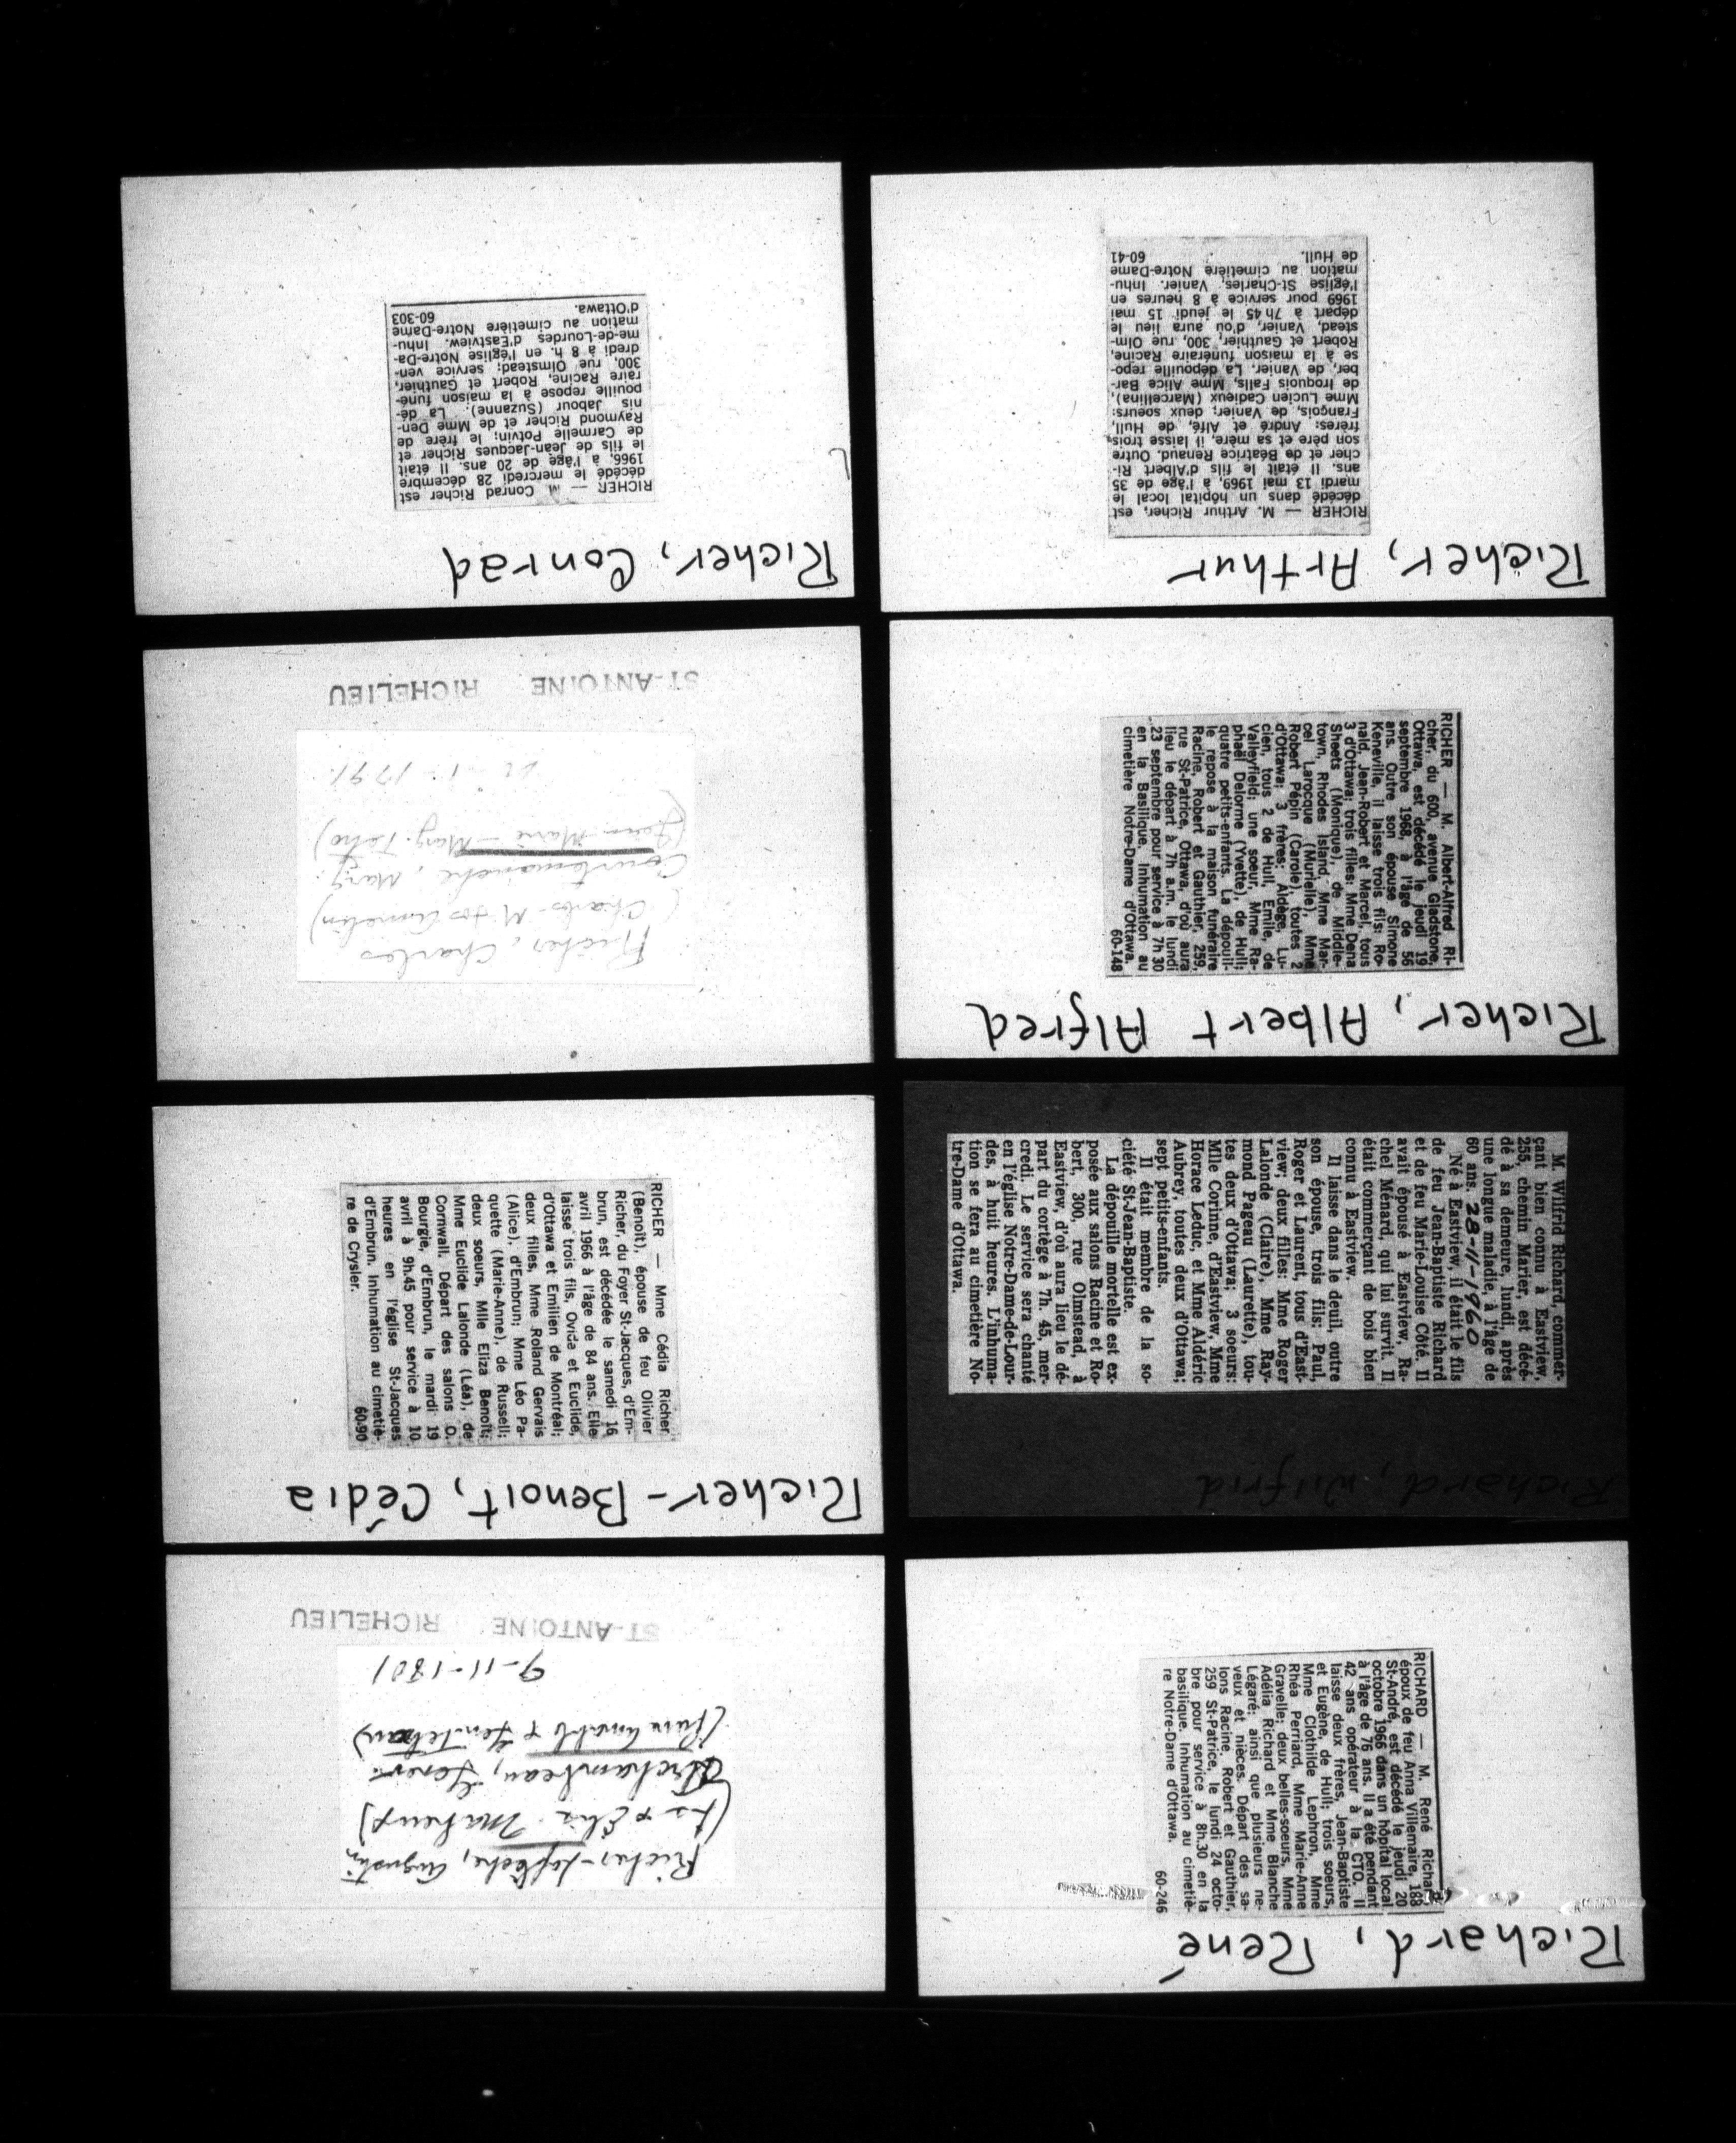 Richard, René
RICHARD — M. René Richard,
époux de feu Anna Villemaire, 188
St-André, est décédé le jeudi 20
octobre 1966 dans un hôpital local
à l'âge de 76 ans. Il a été pendant
42 ans opérateur à la CTO. Il
laisse deux frères, Jean-Baptiste
et Eugène, de Hull; trois soeurs,
Mme Clothilde Lephron, Mme
Rhéa Perriard, Mme Marie-Anne
Gravelle; deux belles-soeurs, Mme
Adélia Richard et Mme Blanche
Légaré; ainsi que plusieurs ne-
veux et nièces. Départ des sa-
lons Racine, Robert et Gauthier,
259 St-Patrice, le lundi 24 octo-
bre pour service à 8h.30 en la
basilique. Inhumation au cimetiè-
re Notre-Dame d'Ottawa.
60-246
Richard, Wilfrid
M. Wilfrid Richard, commer-
çant bien connu à Eastview,
255, chemin Marier, est décé-
dé à sa demeure, lundi, après
une longue maladie, à l'âge de
60 ans. 28-11-1960
Né à Eastview, il était le fils
de feu Jean-Baptiste Richard
et de feu Marie-Louise Côté. Il
avait épousé à Eastview, Ra-
chel Ménard, qui lui survit. Il
était commerçant de bois bien
connu à Eastview.
Il laisse dans le deuil, outre
son épouse, trois fils: Paul,
Roger et Laurent, tous d'East-
view; deux filles: Mme Roger
Lalonde (Claire), Mme Ray-
mond Pageau (Laurette), tou-
tes deux d'Ottawa; 3 soeurs:
Mlle Corinne, d'Eastview, Mme
Horace Leduc, et Mme Aldéric
Aubrey, toutes deux d'Ottawa;
sept petits-enfants.
Il était membre de la so-
ciété St-Jean-Baptiste.
La dépouille mortelle est ex-
posée aux salons Racine et Ro-
bert, 300, rue Olmstead, à
Eastview, d'où aura lieu le dé-
part du cortège à 7h. 45, mer-
credi. Le service sera chanté
en l'église Notre-Dame-de-Lour-
des, à huit heures. L'inhuma-
tion se fera au cimetière No-
tre-Dame d'Ottawa.
Richer, Albert Alfred
RICHER — M. Albert-Alfred Ri-
cher, du 600, avenue Gladstone,
Ottawa, est décédé le jeudi 19
septembre 1968, à l'âge de 56
ans. Outre son épouse Simone
Keneville, il laisse trois fils: Ro-
nald, Jean-Robert et Marcel, tous
3 d'Ottawa; trois filles: Mme Dena
Sheets (Monique), de Middle-
town, Rhodes Island, Mme Mar-
cel Larocque (Murielle), Mme
Robert Pépin (Carole), toutes 2
d'Ottawa; 3 frères: Aldège, Lu-
cien, tous 2 de Hull, Emile, de
Valleyfield; une soeur, Mme Ra-
phaël Delorme (Yvette), de Hull;
quatre petits-enfants. La dépouil-
le repose à la maison funéraire
Racine, Robert et Gauthier, 259,
rue St-Patrice, Ottawa, d'où aura
lieu le départ à 7h a.m. le lundi
23 septembre pour service à 7h30
en la Basilique. Inhumation au
cimetière Notre-Dame d'Ottawa.
60-148
Richer, Arthur
RICHER — M. Arthur Richer, est
décédé dans un hôpital local le
mardi 13 mai 1969, à l'âge de 35
ans. Il était le fils d'Albert Ri-
cher et de Béatrice Renaud. Outre
son père et sa mère, il laisse trois
frères: André et Alfé, de Hull,
François, de Vanier; deux soeurs:
Mme Lucien Cadieux (Marcellina),
de Iroquois Falls, Mme Alice Bar-
ber, de Vanier. La dépouille repo-
se à la maison funéraire Racine,
Robert et Gauthier, 300, rue Olm-
stead, Vanier, d'où aura lieu le
départ à 7h45 le jeudi 15 mai
1969 pour service à 8 heures en
l'église St-Charles, Vanier. Inhu-
mation au cimetière Notre-Dame
de Hull. 60-41
Richer-Laflèche, Augustin
(Frs & Elis. Maheux)
Archambeau, Genev.
9-11-1801
ST-ANTOINE RICHELIEU
Richer-Benoit, Cédia
RICHER — Mme Cédia Richer
(Benoît), épouse de feu Olivier
Richer, du Foyer St-Jacques, d'Em-
brun, est décédée le samedi 16
avril 1966 à l'âge de 84 ans. Elle
laisse trois fils, Ovida et Euclide,
d'Ottawa et Emilien de Montréal;
deux filles, Mme Roland Gervais
(Alice), d'Embrun; Mme Léo Pa-
quette (Marie-Anne), de Russell;
deux soeurs, Mlle Eliza Benoît;
Mme Euclide Lalonde (Léa), de
Cornwall. Départ des salons O.
Bourgie, d'Embrun, le mardi 19
avril à 9h.45 pour service à 10
heures en l'église St-Jacques
d'Embrun. Inhumation au cimetiè-
re de Crysler. 60-90
Richer, Charles
Courtemanche, Marg.
1-1791
ST-ANTOINE RICHELIEU
Richer, Conrad
RICHER — M. Conrad Richer est
décédé le mercredi 28 décembre
1966, à l'âge de 20 ans. Il était
le fils de Jean-Jacques Richer et
de Carmelle Potvin; le frère de
Raymond Richer et de Mme Den-
nis Jabour (Suzanne). La dé-
pouille repose à la maison funé-
raire Racine, Robert et Gauthier,
300, rue Olmstead; service ven-
dredi à 8 h. en l'église Notre-Da-
me-de-Lourdes d'Eastview. Inhu-
mation au cimetière Notre-Dame
d'Ottawa. 60-303